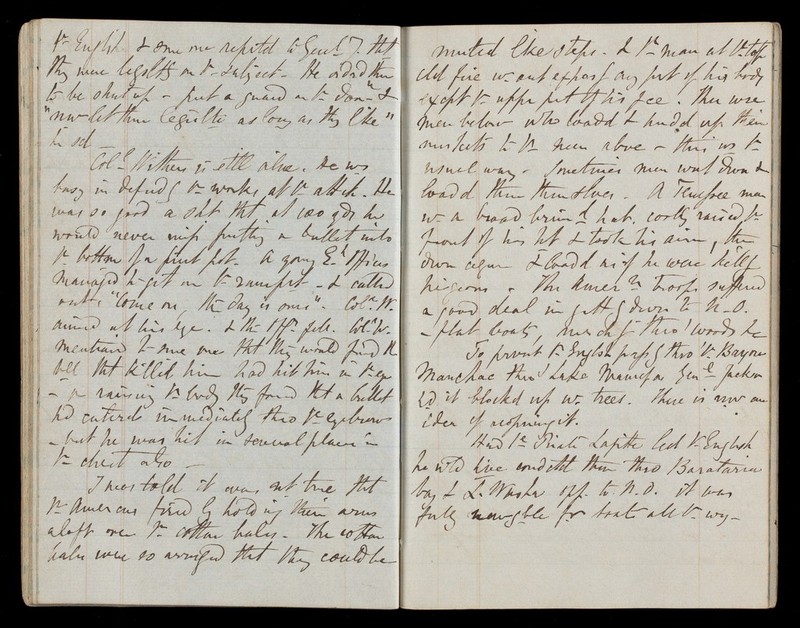 yr English & some one repeated to Genl J. tht
they were legalty on yr subject - He ordered them
to be shut up - put a guard on yr door & 
"now let them legislte as long as they like"
he sd
Col. Withers is still alive. He ws
busy in defendg yr works at yr attck. He
was so good a shot tht at 100 yds he
would never miss putting a bullet into
yr bottom of a pint pot. A young Eh officer
managed to get on yr rampart - & called
out "Come on, the day is ours". Coln W.
aimed at his eye. & the offr fell. Col W.
mentioned to some one tht they would find the
ball tht killed him had hit him in yr eye
- on raising yr body they found tht a bullet
hd entered immediately thro yr eyebrow
- but he was hit in several places in
yr chest also -
I was told it was not true tht
yr Americans fired by holding their arms
aloft over yr cotton bales. The cotton
bales were so arranged tht they could be
mounted like steps. & yr man at yr top
cld fire wt out exposg any part of his body
except yr upper prt of his face. There were
men below who loadd & handd up their
muskets to yr men above - this ws yr
usual way - sometimes men went down &
loadd them themselves. A Tennessee man
w a broad brimd hat. coolly raised yr
front of his ht & took his aim, then
down again & loadd as if he were killg
pigeons - The Amern troops suffered
a good deal in gettg down to N-O.
- flat boats, marchg thro' woods &c
To prevent yr English passg thro yr Bayou
Manchac thro Lake Maurepas Genl Jackson
hd it blocked up w. trees. There is now an
idea of reopening it.
Had yr Pirate Lafitte led yr English
he wld have conductd them thro Barataria
bay & L. Washa opp. to N.O. it was
fully navigable for boats all yr way -